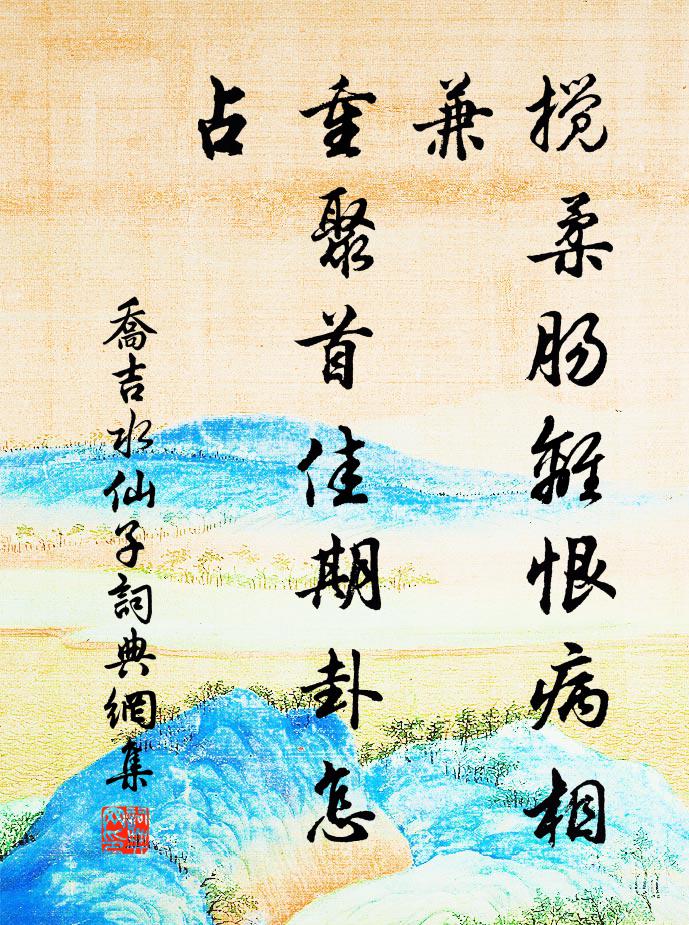 搅柔肠離恨病相
兼
重聚首佳期卦怎
占
喬吉水仙子詞典網集